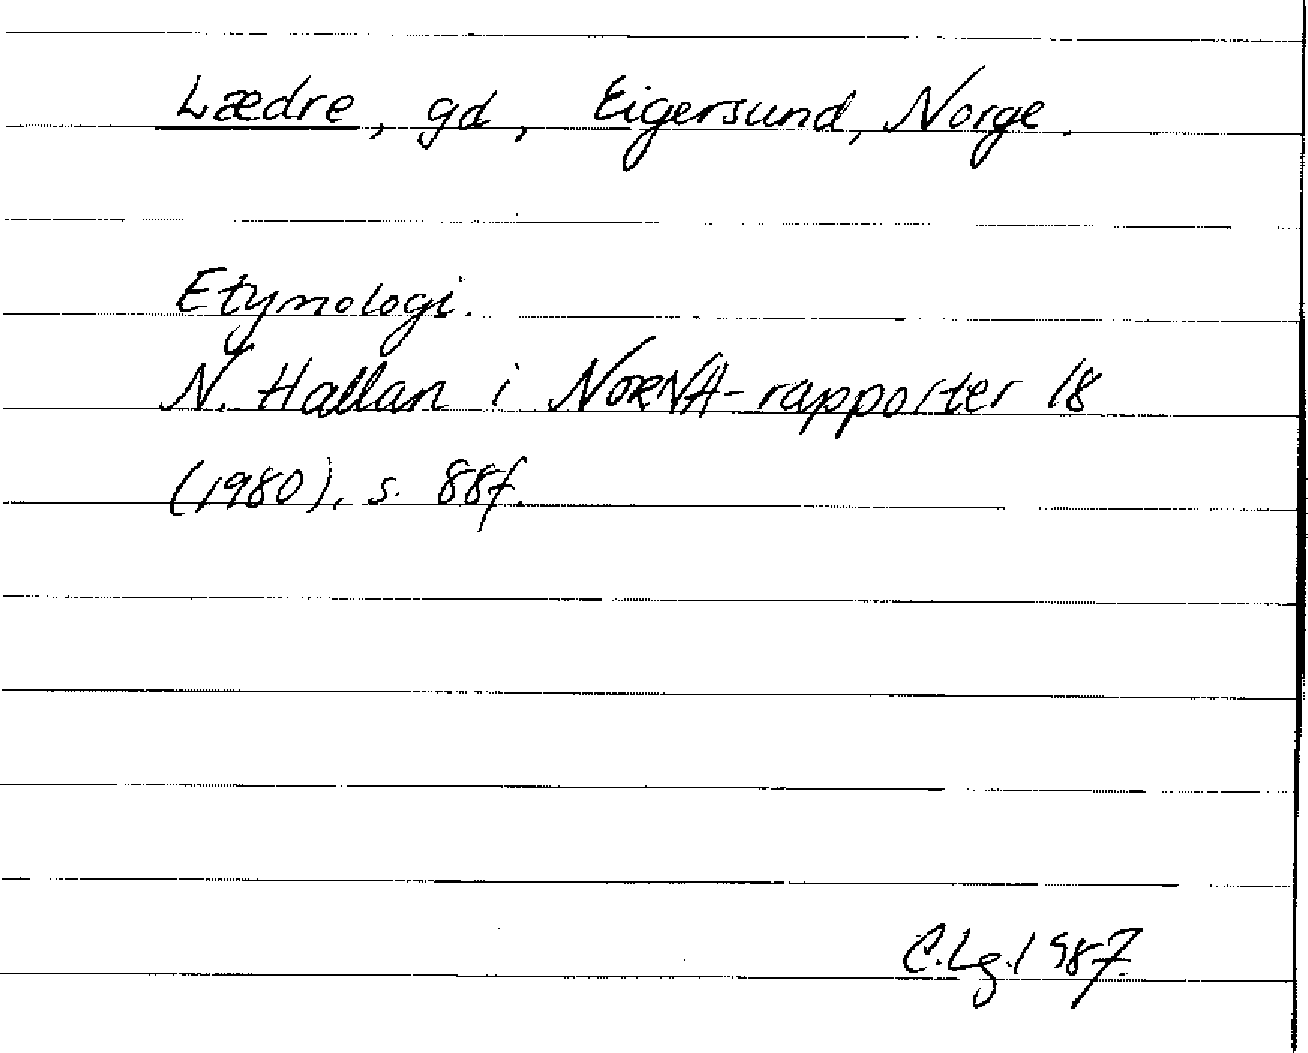 Lædre, gd, Eigersund, Norge.
Etymologi.
N. Hallan i NORNA-rapporter 18
(1980), s. 88f.
C.Lg.1987.